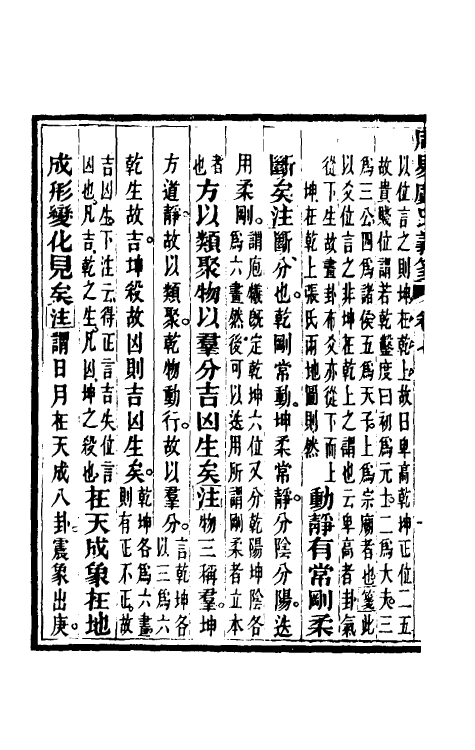 周易虞氏義箋 卷七
以位言之則坤在乾上故曰卑高乾坤正位二五
故貴賤位謂若乾鑿度曰初爲元士二爲大夫三
爲三公四爲諸侯五爲天子上爲宗廟者也箋此
以爻位言之非坤在乾上之謂也云卑高者卦氣
從下生故畫卦布爻亦從下而上
坤在乾上張氏兩地圖則然
動靜有常剛柔
斷矣注斷分也。乾剛常動。坤柔常靜。分陰分陽。迭
用柔剛。
謂庖犧旣定乾坤六位又分乾陽坤陰各
爲六畫然後可以迭用所謂剛柔者立本
者
也
方以類聚物以羣分吉凶生矣注物三稱羣。坤
方道靜。故以類聚。乾物動行。故以羣分。
言乾坤各
以三爲六
乾生故吉。坤殺故凶。則吉凶生矣。
乾坤各爲六畫
則有正不正。故
吉凶生。下注云得正言吉失位言
凶也。凡吉乾之生。凡凶坤之殺也
在天成象在地
成形變化見矣注謂日月在天成八卦。震象出庚。